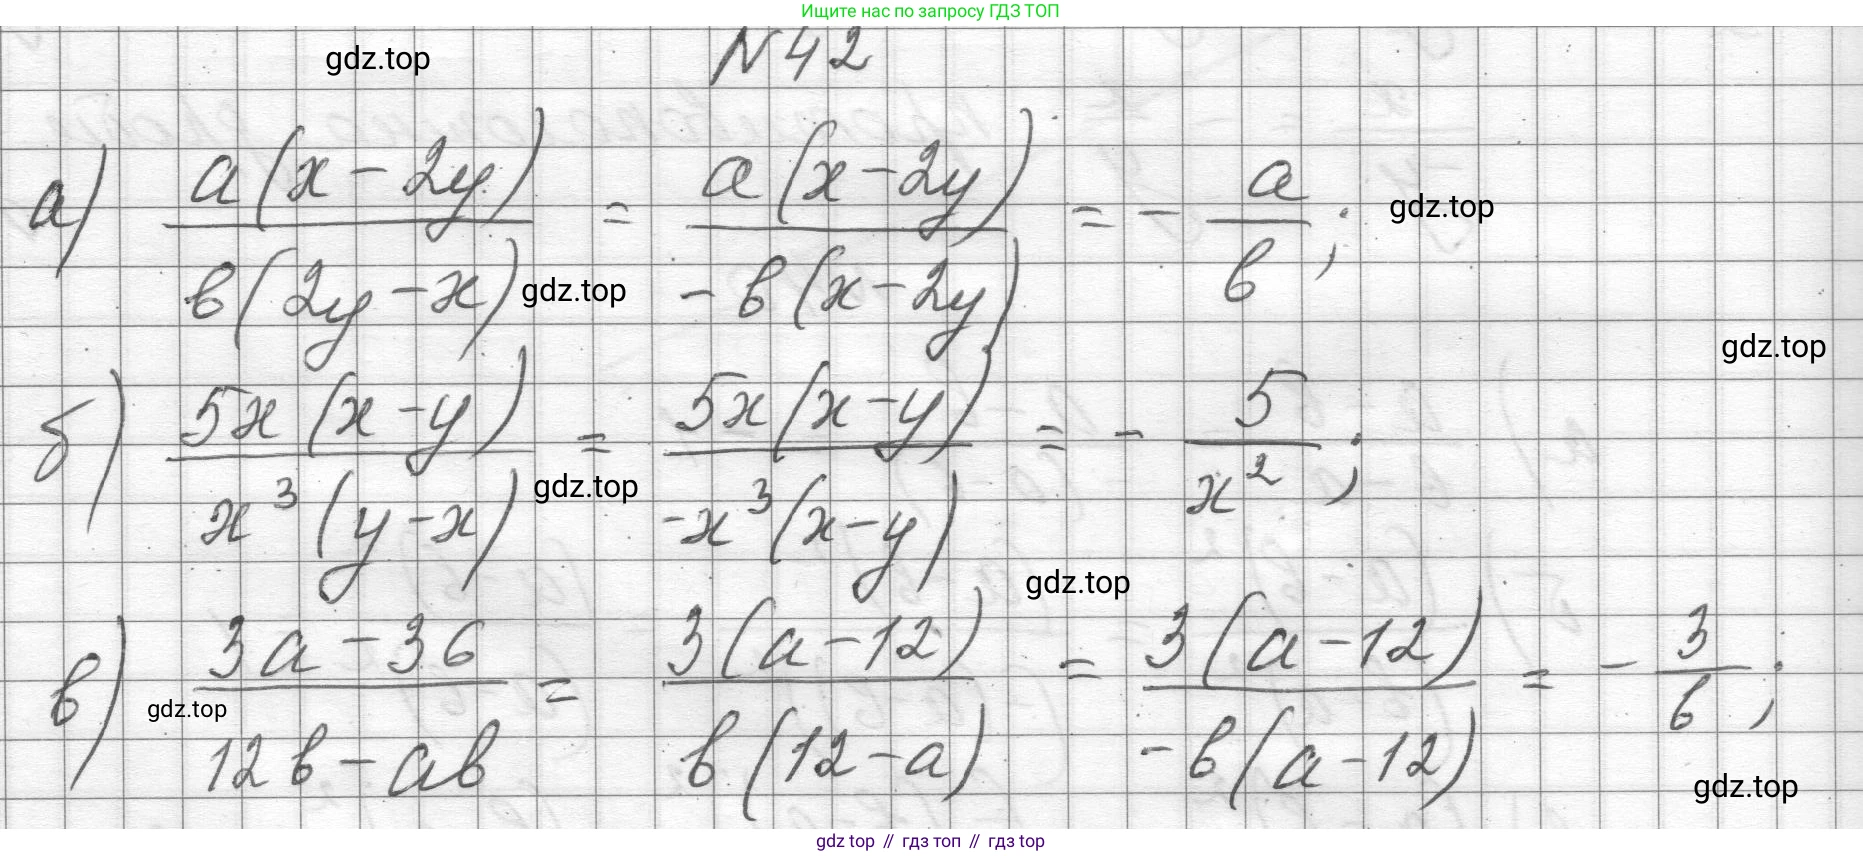 Ищите нас по запросу ГДЗ ТОП
gdz.top
N 42
а) a(x - 2y) / b(2y - x) = a(x - 2y) / -b(x - 2y) = - a / b ;
gdz.top
gdz.top
gdz.top
б) 5x(x - y) / x³(y - x) = 5x(x - y) / -x³(x - y) = - 5 / x² ;
gdz.top
gdz.top
в) 3a - 36 / 12b - ab = 3(a - 12) / b(12 - a) = 3(a - 12) / -b(a - 12) = - 3 / b ;
gdz.top
gdz.top
gdz top // гдз топ // гдз top